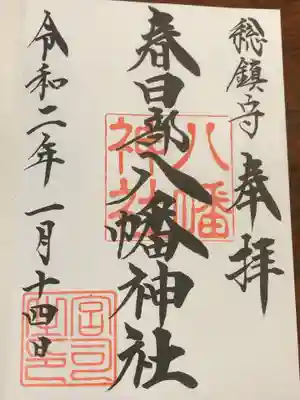 総鎮守
奉拝
春日部八幡神社
八幡神社
令和二年一月十四日
宮司之印